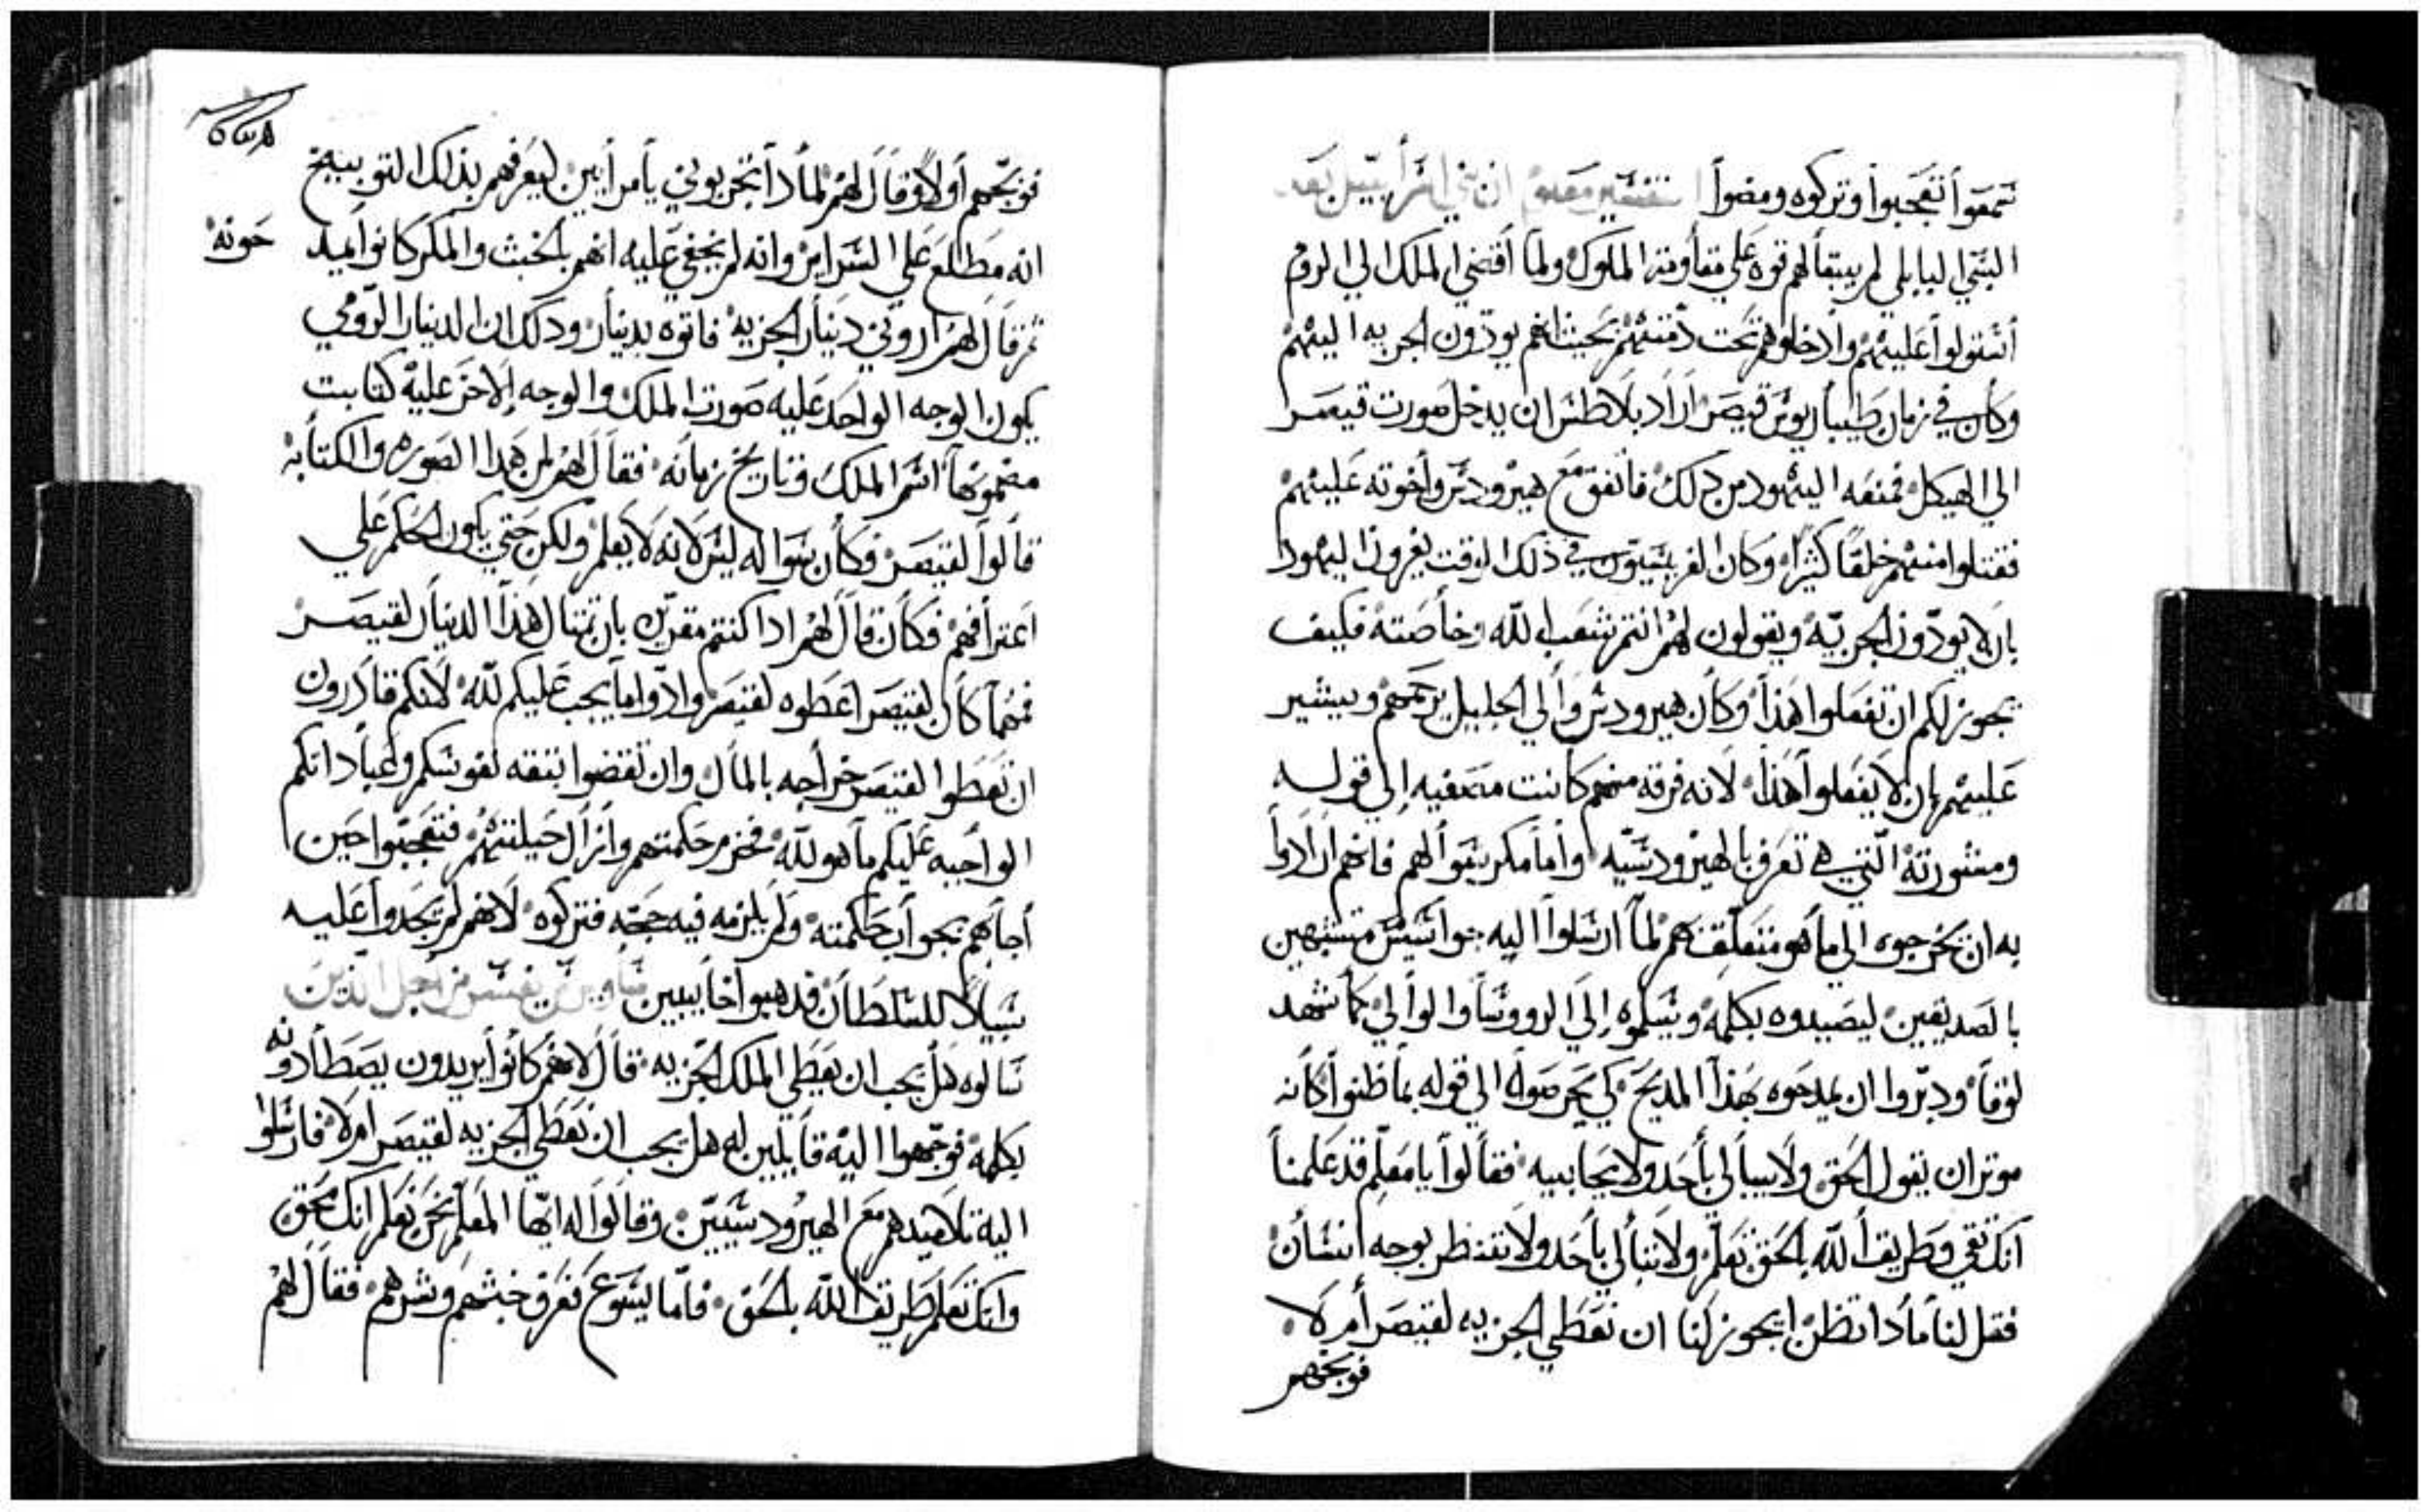 سمعوا تعجبوا وتركوه ومضوا تفسير معلم ان بني اسراييل بعد
السبي البابلي لم يبقا لهم قوه علي مقاومة الملوك ولما أفضي الملك الي الروم
أستولوا عليهم وادخلوهم تحت ذمتهم بحيث انهم يودون الجزيه اليهم
وكان في زمان طيباريوس قيصر اراد بلاطس ان يدخل صورت قيصر
الي الهيكل فمنعه اليهود من ذلك فاتفق مع هيرودس وأخوته عليهم
فقتلوا منهم خلقًا كثيرًا وكان الفريسيون في ذلك الوقت يغرون اليهود
بان لا يودون الجزيّه ويقولون لهم انتم شعب الله وخاصته فكيف
يجوز لكم ان تفعلوا هذا وكان هيرودس والي الجليل يزجرهم ويشير
عليهم بان لا يفعلوا هذا لانه فرقه منهم كانت مصغيه إلي قوله
ومشورته التي هي تعرف بالهيرودسيّه وأما مكر سوالهم فانهم أرادوا
به ان يخرجوه الي ما هو متعلق بهم لما ارسلوا اليه جواسيس متشبهين
بالصديقين ليصيدوه بكلمه ويسلموه إلي الرووسا والوالي كما شهد
لوقا ودبّروا ان يمدحوه بهذا المديح كي يحرصوا الي قوله بما ظنوا كانه
موتر ان يقول الحق ولا يبالي بأحد ولا يحابيه فقالوا يا معلم قد علمنا
انك تقي وطريق الله بالحق تعلم ولا تبالي بأحد ولا تنظر بوجه انسان
فقل لنا مادا تظن ايجوز لنا ان نعطي الجزيه لقيصر أم لا
فوبخهم
فوبّخهم أولاً وقال لهم لمادا تجربوني يا مرأيين ليعرفهم بذلك التوبيخ
انه مطلع علي السراير وانه لم يخفي عليه انهم بالخبث والمكر كانوا يمدحونه
ثم قال لهم اروني دينار الجزيه فاتوه بدينار ودلك ان الدينار الرومي
يكون الوجه الواحد عليه صورت الملك والوجه الاخر عليه كتابت
مضمونها اسم الملك وتاريخ زمانه فقال لهم لمن هدا الصوره والكتابه
قالوا لقيصر فكان سواله ليس لانه لا يعلم ولكن حتي يكون الحكم علي
اعترافهم فكان قال لهم ادا كنتم مقرين بان تمتال هذا الدينار لقيصر
فمهما كان لقيصر اعطوه لقيصر وادّوا ما يجب عليكم لله لانكم قادرون
ان تعطوا لقيصر خراجه بالمال وان تقضوا بتقه نفوسكم وعباداتكم
الواجبه عليكم ما هو لله فخزم حكمتهم وأزال حيلتهم فتعجبوا حين
أجابهم بجواب حكمته ولم يلزمه فيه حجه فتركوه لانهم لم يجدوا عليه
سبيلاً للسلطان فدهبوا خايبين يفسر من اجل الذين
سالوه هل يجب ان يعطي الملك الجزيه قال لانهم كانوا يريدون يصطادونه
بكلمه فوجهوا اليه قايلين له هل يجب ان نعطي الجزيه لقيصر ام لا فارسلوا
اليه تلاميدهم مع الهيرودسيين وقالوا له ايها المعلم نحن نعلم انك محق
وانك تعلم طريق الله بالحق فاما يسوع فعرف خبثهم وشرهم فقال لهم